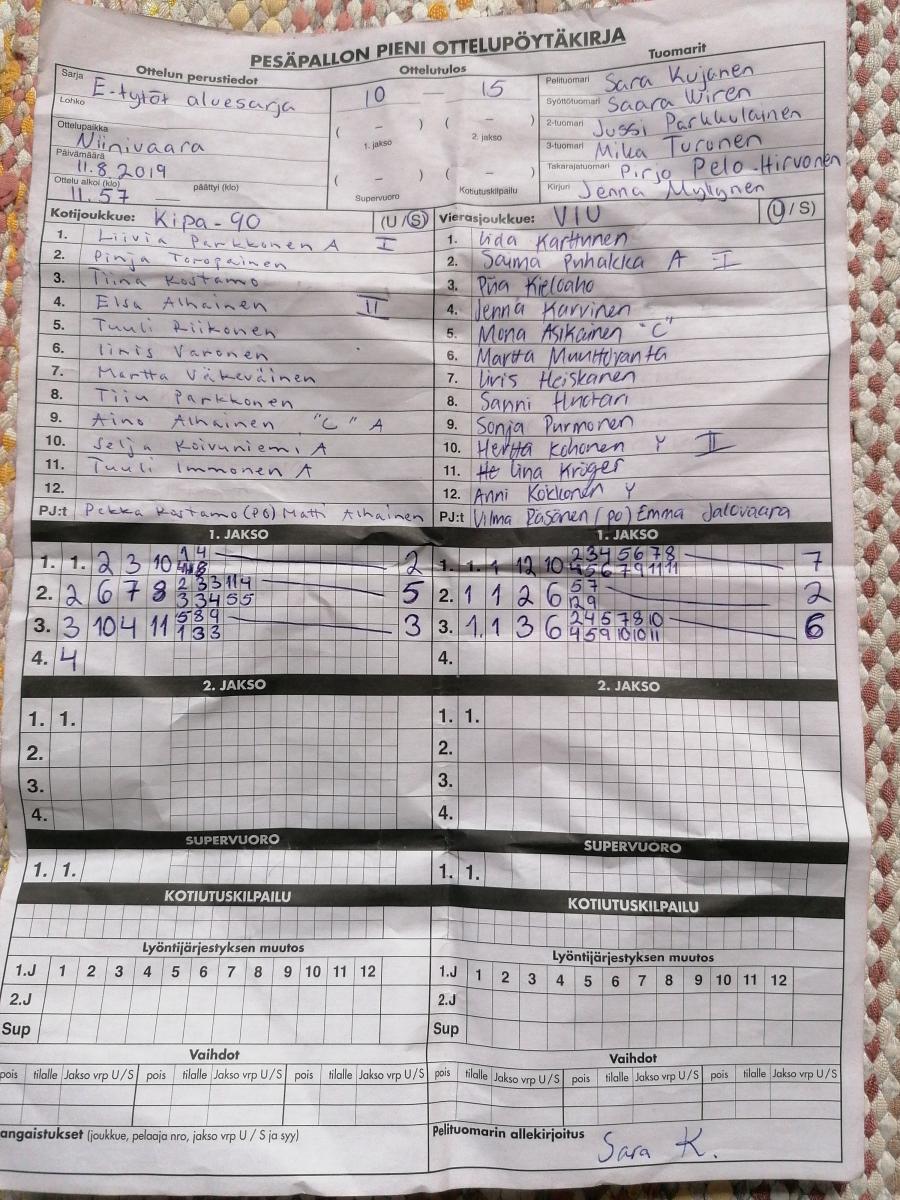 PESÄPALLON PIENI OTTELUPÖYTÄKIRJA
Ottelun perustiedot
Sarja E-tytöt aluesarja
Lohko
Ottelupaikka Niinivaara
Päivämäärä 11.8.2019
Ottelu alkoi (klo) 11.57 päättyi (klo)
Ottelutulos
10 — 15
( – ) ( – )
1. jakso 2. jakso
( – ) ( – )
Supervuoro Kotiutuskilpailu
Tuomarit
Pelituomari Sara Kujanen
Syöttötuomari Saara Wiren
2-tuomari Jussi Parkkulainen
3-tuomari Mika Turunen
Takarajatuomari Pirjo Pelo-Hirvonen
Kirjuri Jenna Myllynen
Kotijoukkue: Kipa-90 (U/S)
1. Liivia Parkkonen A I
2. Pinja Toropainen
3. Tiina Kostamo
4. Elsa Alhainen II
5. Tuuli Riikonen
6. Iiris Varonen
7. Martta Väkeväinen
8. Tiiu Parkkonen
9. Aino Alhainen "C" A
10. Selja Koivuniemi A
11. Tuuli Immonen A
12.
PJ:t Pekka Kostamo (PO) Matti Alhainen
Vierasjoukkue: VIU (U/S)
1. Iida Karttunen
2. Saima Puhakka A I
3. Piia Kieloaho
4. Jenna Karvinen
5. Mona Asikainen "C"
6. Martta
7. Iiris Heiskanen
8. Sanni Huotari
9. Sonja Purmonen
10. Hertta Kohonen Y II
11. He Iina Kröger
12. Anni Kokkonen Y
PJ:t Vilma Räsänen (PO) Emma Jalovaara
1. JAKSO
1. 1. 2 3 10 1 4 2
2. 2 6 7 8 2 3 3 11 4 5
3 3 4 5 5
3. 3 10 4 11 5 8 9 3
1 3 3
4. 4
1. JAKSO
1. 1. 1 12 10 2 3 4 5 6 7 8 7
4 5 6 7 9 11 11
2. 1 1 2 6 5 7 2
2 9
3. 1.1 3 6 2 4 5 7 8 10 6
4 5 9 10 10 11
4.
2. JAKSO
1. 1.
2.
3.
4.
2. JAKSO
1. 1.
2.
3.
4.
SUPERVUORO
1. 1.
SUPERVUORO
1. 1.
KOTIUTUSKILPAILU
KOTIUTUSKILPAILU
Lyöntijärjestyksen muutos
1.J 1 2 3 4 5 6 7 8 9 10 11 12
2.J
Sup
Lyöntijärjestyksen muutos
1.J 1 2 3 4 5 6 7 8 9 10 11 12
2.J
Sup
Vaihdot
pois tilalle Jakso vrp U/S pois tilalle Jakso vrp U/S pois tilalle Jakso vrp U/S
Vaihdot
pois tilalle Jakso vrp U/S pois tilalle Jakso vrp U/S pois tilalle Jakso vrp U/S
angaistukset (joukkue, pelaaja nro, jakso vrp U / S ja syy)
Pelituomarin allekirjoitus
Sara K.